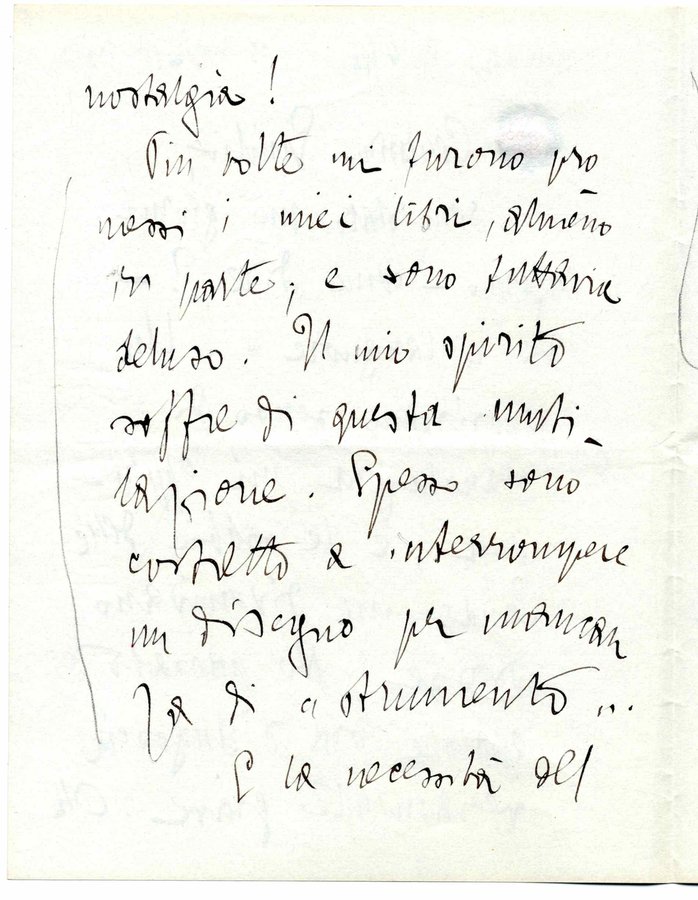 nostalgia!
Più volte mi furono pro
messi i miei libri, almeno
in parte; e sono tuttavia
deluso. Il mio spirito
soffre di questa muti_
lazione. Spesso sono
costretto a interrompere
un disegno per mancan
za di "strumento"...
E la necessità dell